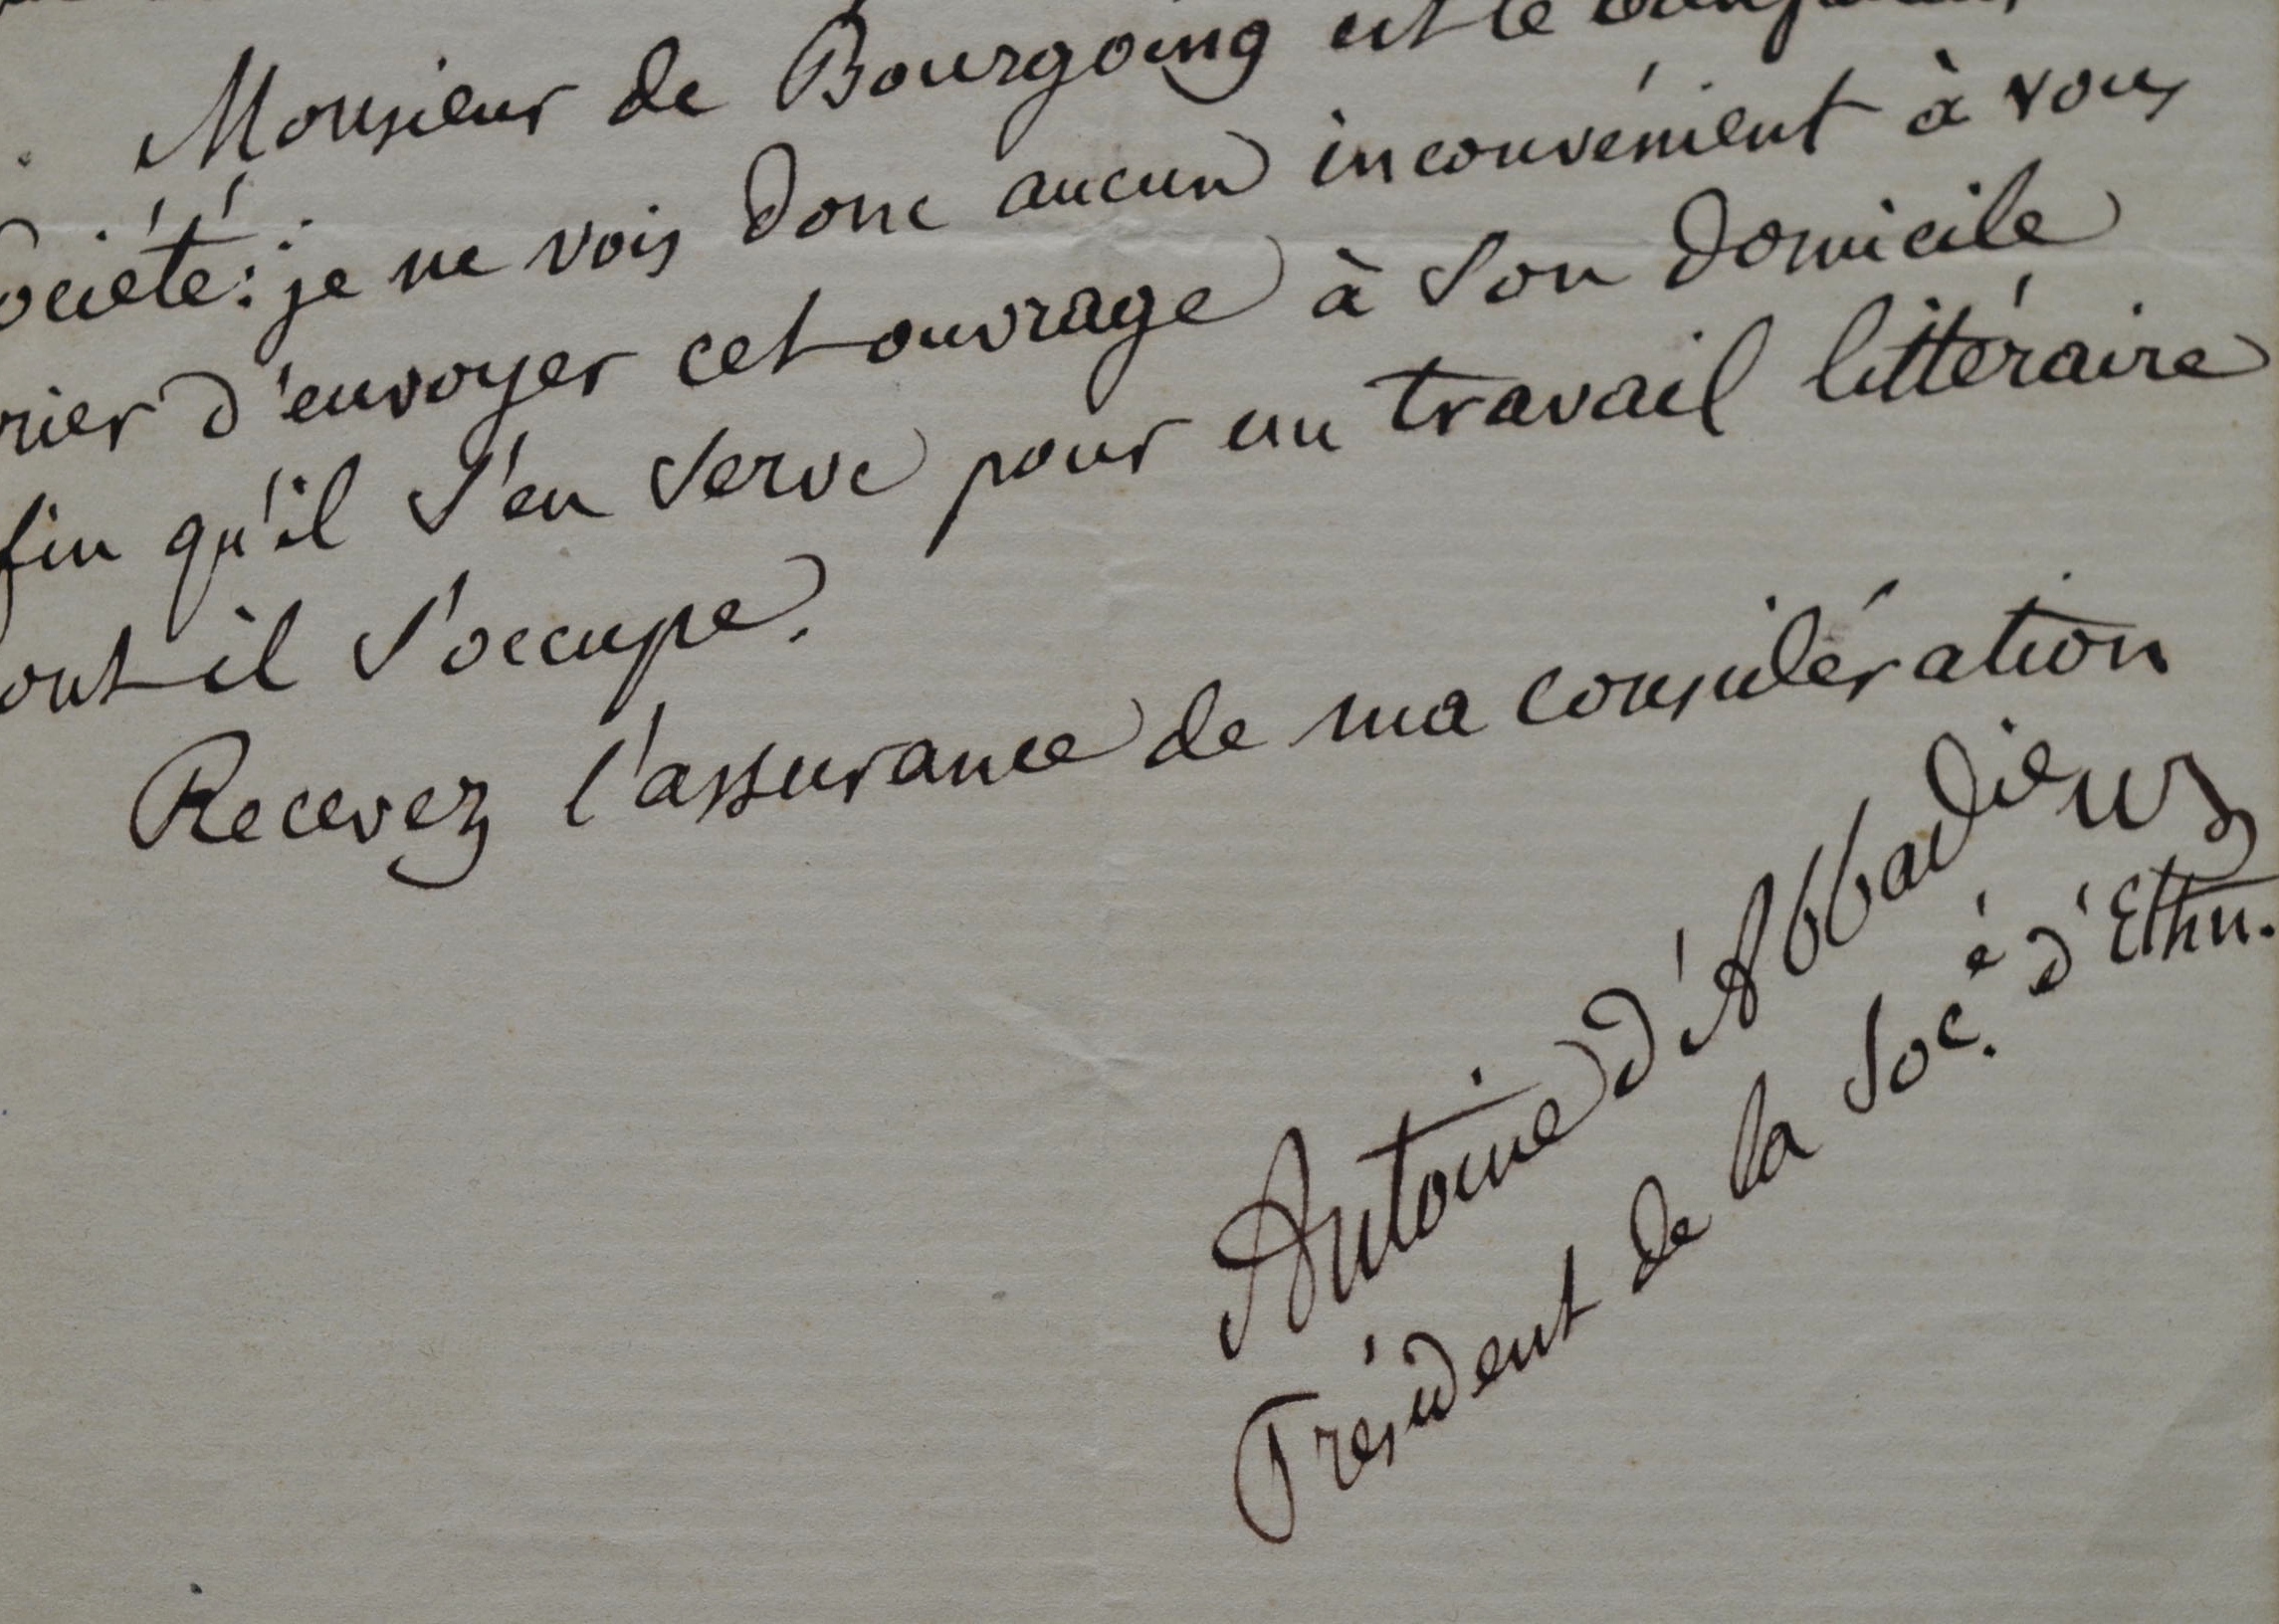 Monsieur de Bourgoing est le
ociété: je ne vois donc aucun inconvénient à vous
rier d'envoyer cet ouvrage à son domicile
fin qu'il s'en serve pour un travail littéraire
ont il s'occupe.
Recevez l'assurance de ma considération
Antoine d'Abbadie
Président de la Soc.é d'Ethn.